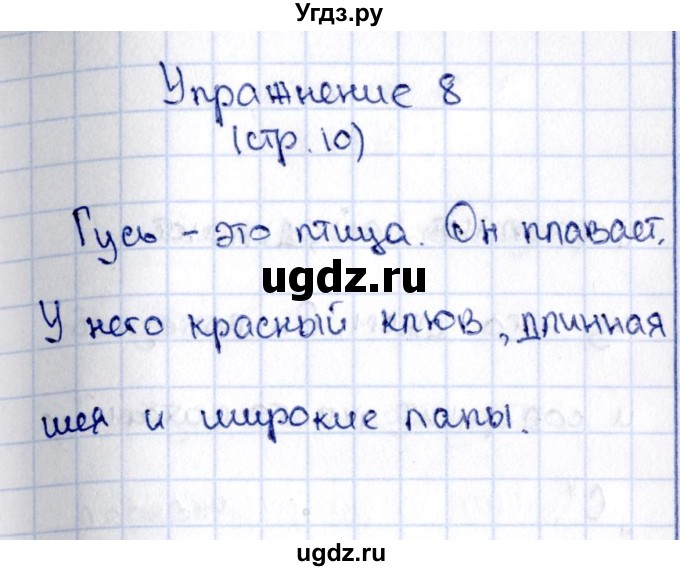 Угдз.ру
Упражнение 8
(стр. 10)
Гусь - это птица. Он плавает.
ugdz.ru
У него красный клюв, длинная
шея и широкие лапы.
ugdz.ru